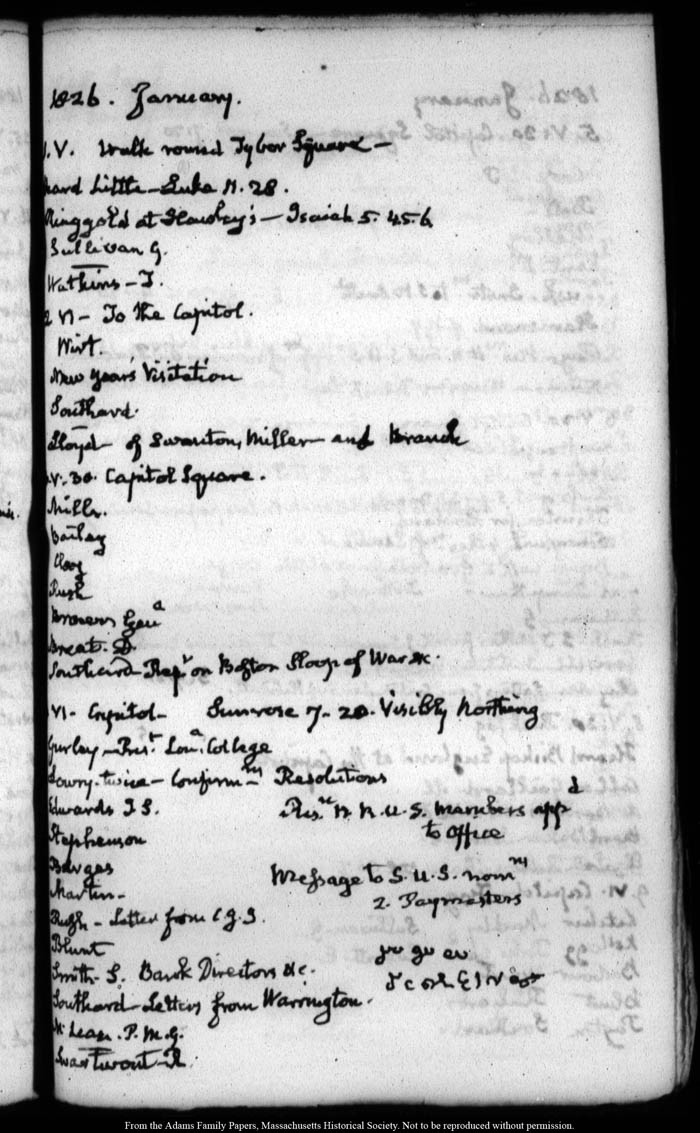 1826. January.
V. Walk round Tyber Square –
heard Little – Luke II. 28.
Ringgold at Hawley's – Isaiah 5. 4 5. 6.
Sullivan G.
Watkins – T.
2 VI – To the Capitol.
Wirt.
New years Visitation
Southard.
Lloyd – of Swanton, Miller – and Branch
V. 30. Capitol Square.
Mills.
Bailey
Clay
Rush
Brown Genl
Southard – Rep on Boston Sloop of War &c.
VI – Capitol – Sunrose 7 – 20. Visibly Northing
Gurley – Prest Loua College
Lowry – twice – Confirm Resolutions
Edwards I S. Members appd
to Office
Stephenson
Message to S. U. S. nomn
2. Paymasters
Martin –
Rush – Letter from C. J. I.
Blunt
Smith – S. Bank Directors &c.
Southard – Letters from Warrington.
Mc Lean. P. M. G.
Swartwout – R.
From the Adams Family Papers, Massachusetts Historical Society. Not to be reproduced without permission.